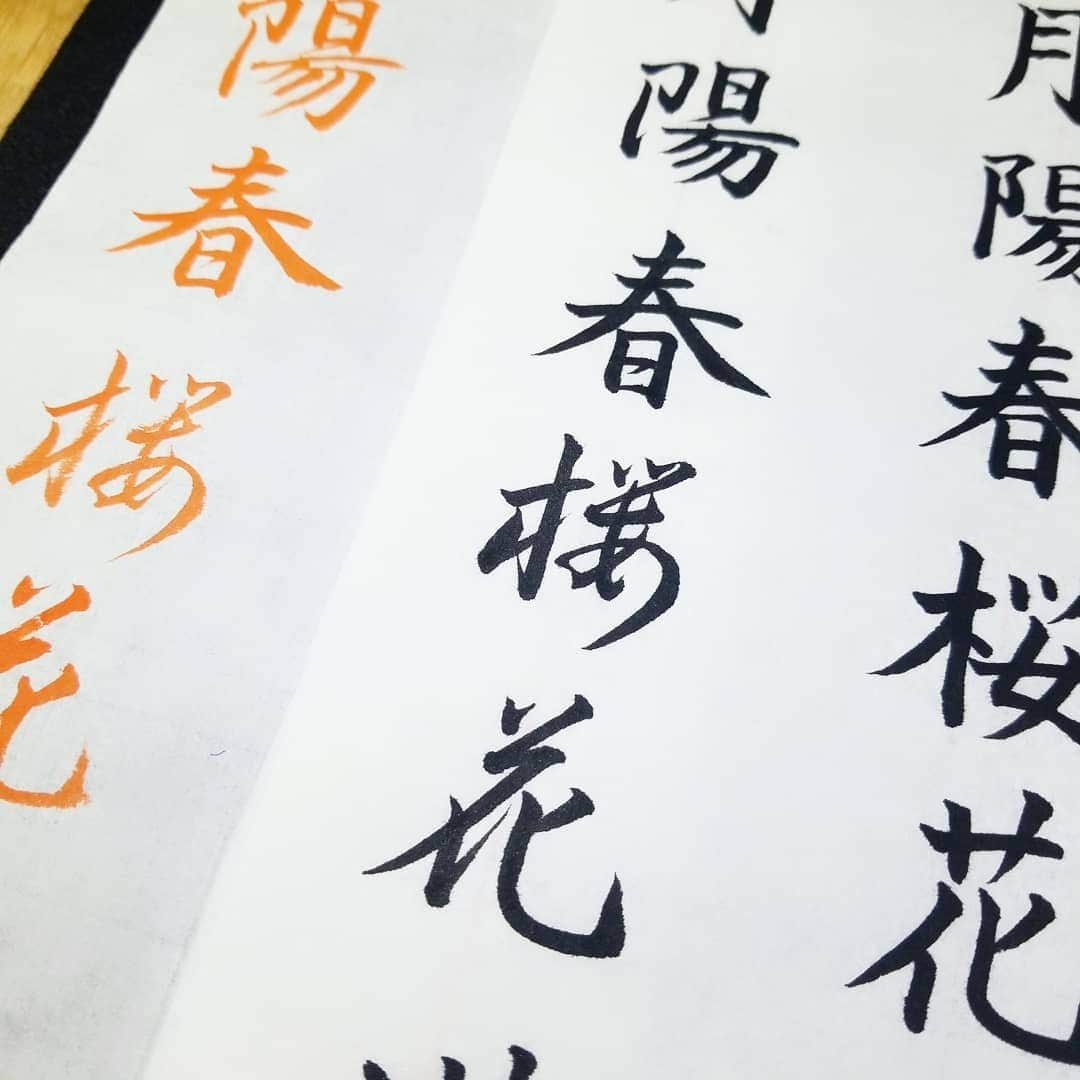 月陽春桜花
陽春桜花
陽春桜花